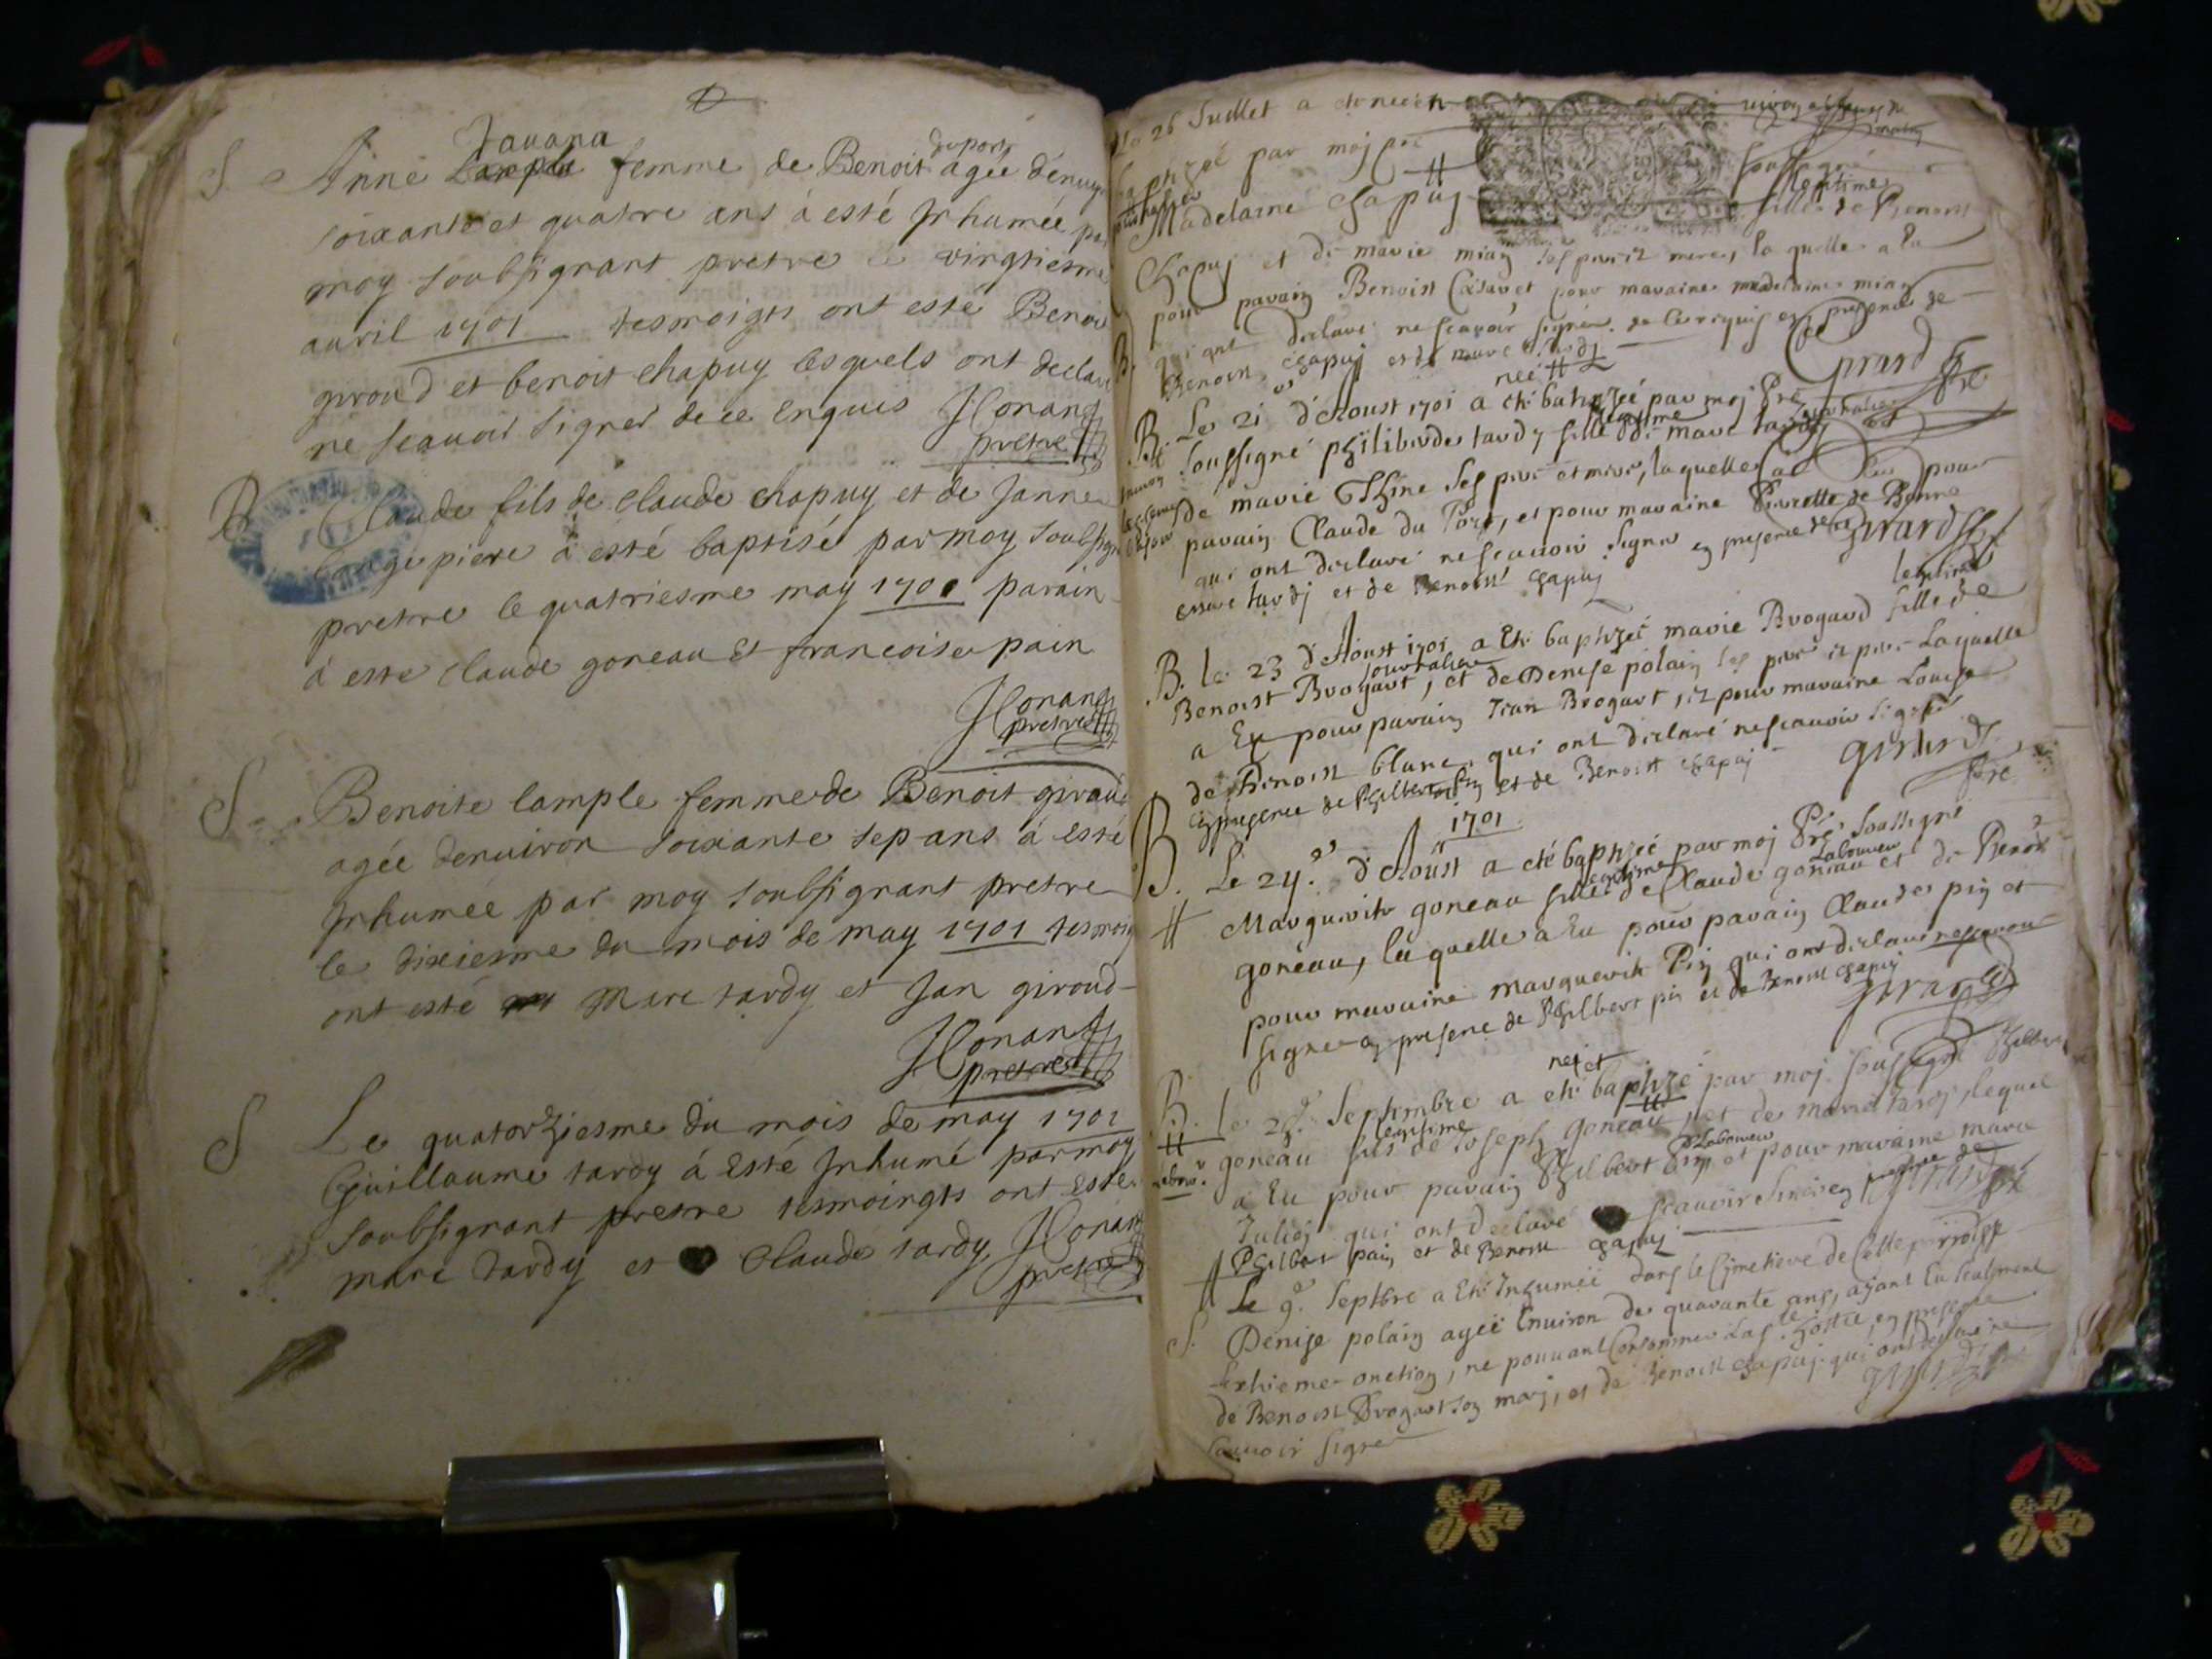 S
Tavana
duport
Anne Lample femme de Benoit agée d'enuiron
soixante et quatre ans à esté Jnhumée par
moy soubsignant pretre le vingtiesme
auril 1701 tesmoigts ont esté Benoit
giroud et benoit chapuy lesquels ont declaré
ne scauoir signer de ce Enquis JConand
pretre
B Claude fils de Claude chapuy et de Janne
piere à esté baptisé par moy soubsignant
pretre le quatriesme may 1701 parain
à esté Claude goneau Et francoise pain
JConand
pretre
S Benoite lample femme de Benoit giraud
agée denuiron soixante sept ans à esté
Jnhumée par moy soubsignant pretre
le dixiesme du mois de may 1701 tesmoings
ont esté Marc tardy et Jan giroud
JConand
pretre
S Le quatorziesme du mois de may 1701
Guillaume tardy á Esté Jnhumé par moy
soubsignant pretre tesmoingts ont esté
marc tardy et Claude tardy JConand
pretre
Le 26 Juillet a eté neé et
baptizeé par moj pre soussigné
legitime
Madelaine Chapuj fille de Benoist
Chapuj et de marie miaz ses pere et mere, la quelle a Eu
pour parain Benoist et pour maraine madelaine miaz
qui ont declaré ne scauoir signer de ce requis en presence de
Benoist chapuj et de marc tardj Girard pre
neé
B. Le 21 d'Aoust 1701 a eté baptizeé par moj Pre
legitime
soussigné philiberde tardy fille de marc tardj et
de marie Thine ses pere et mere, laquelle a Eu pour
parain Claude du Port, et pour maraine Pierrette de Bonne
qui ont declaré ne scauoir signer en presence de Girard
marc tardj et de Benoist chapuj
legitime
B. le 23 d'Aoust 1701 a Eté baptizeé marie Brogard fille de
journalier
Benoist Brogart, et de Denise polain ses pere et mere Laquelle
a Eu pour parain Jean Brogart, et pour maraine Louise
de Benoist blanc, qui ont declaré ne scauoir signer
en presence de Philbert pin et de Benoist chapuj Girard
Pre
1701
B. Le 24.e d'Aoust a eté baptizeé par moj Pre soussigné
legitime Laboureur
Marguerite goneau fille de Claude goneau et de Benoite
goneau, la quelle a Eu pour parain Claude pin et
pour maraine marguerite Pin qui ont declaré ne scauoir
signer en presence de Philbert pin et de Benoist chapuj Girard
nez et
B. le Septembre a eté baptizé par moj soussigné Philbert
legitime
goneau fils de Joseph goneau et de marie tardj, lequel
Laboureur
a Eu pour parain Philbert Pin et pour maraine marie
Julien qui ont declaré scauoir signer en presence de Girard pre
Philbert pain et de Benoist chapuj
S. Le 9.e Septbre a Eté Inhumeé dans le Cimetiere de Cette parroisse
Denise polain ageé Enuiron de quarante ans, ayant Eu seulement
Extreme onction, ne pouuant Consommer La ste hostie, en presence
de Benoist Brogart son marj, et de Benoist chapuj qui ont declaré ne
scauoir signer Girard